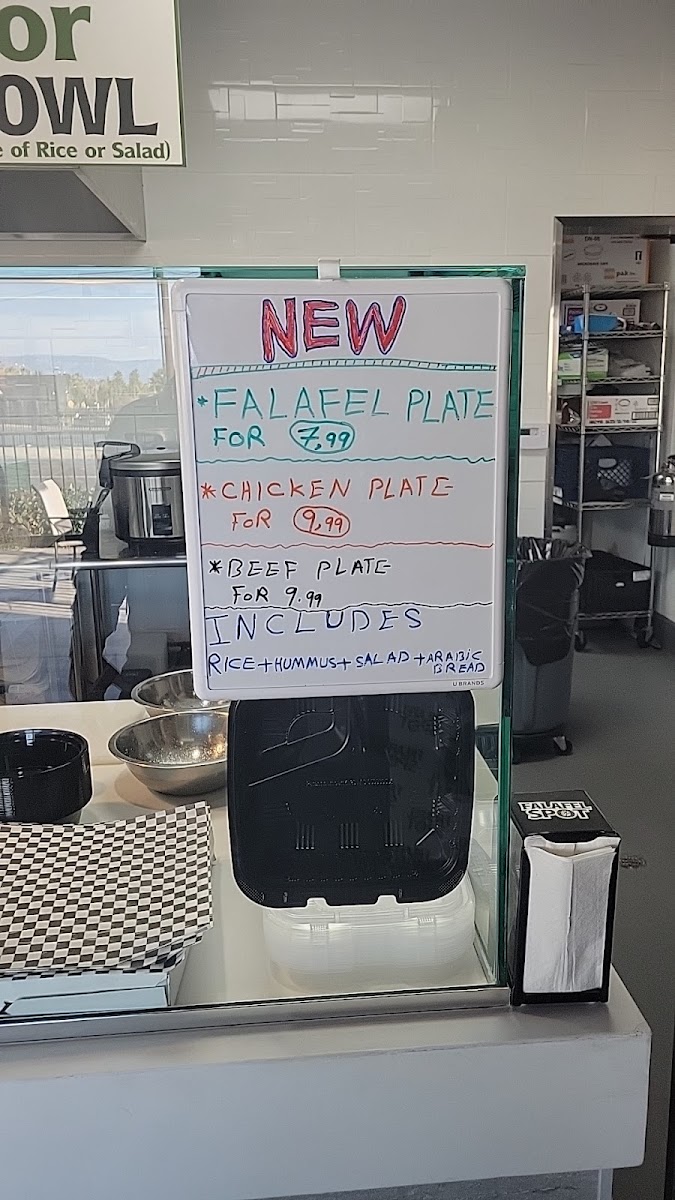 or
OWL
e of Rice or Salad)
NEW
*FALAFEL PLATE
FOR 7,99
*CHICKEN PLATE
FOR 9,99
*BEEF PLATE
FOR 9.99
INCLUDES
RICE+HUMMUS+SALAD+ARABIC
BREAD
U BRANDS
FALAFEL
SPOT